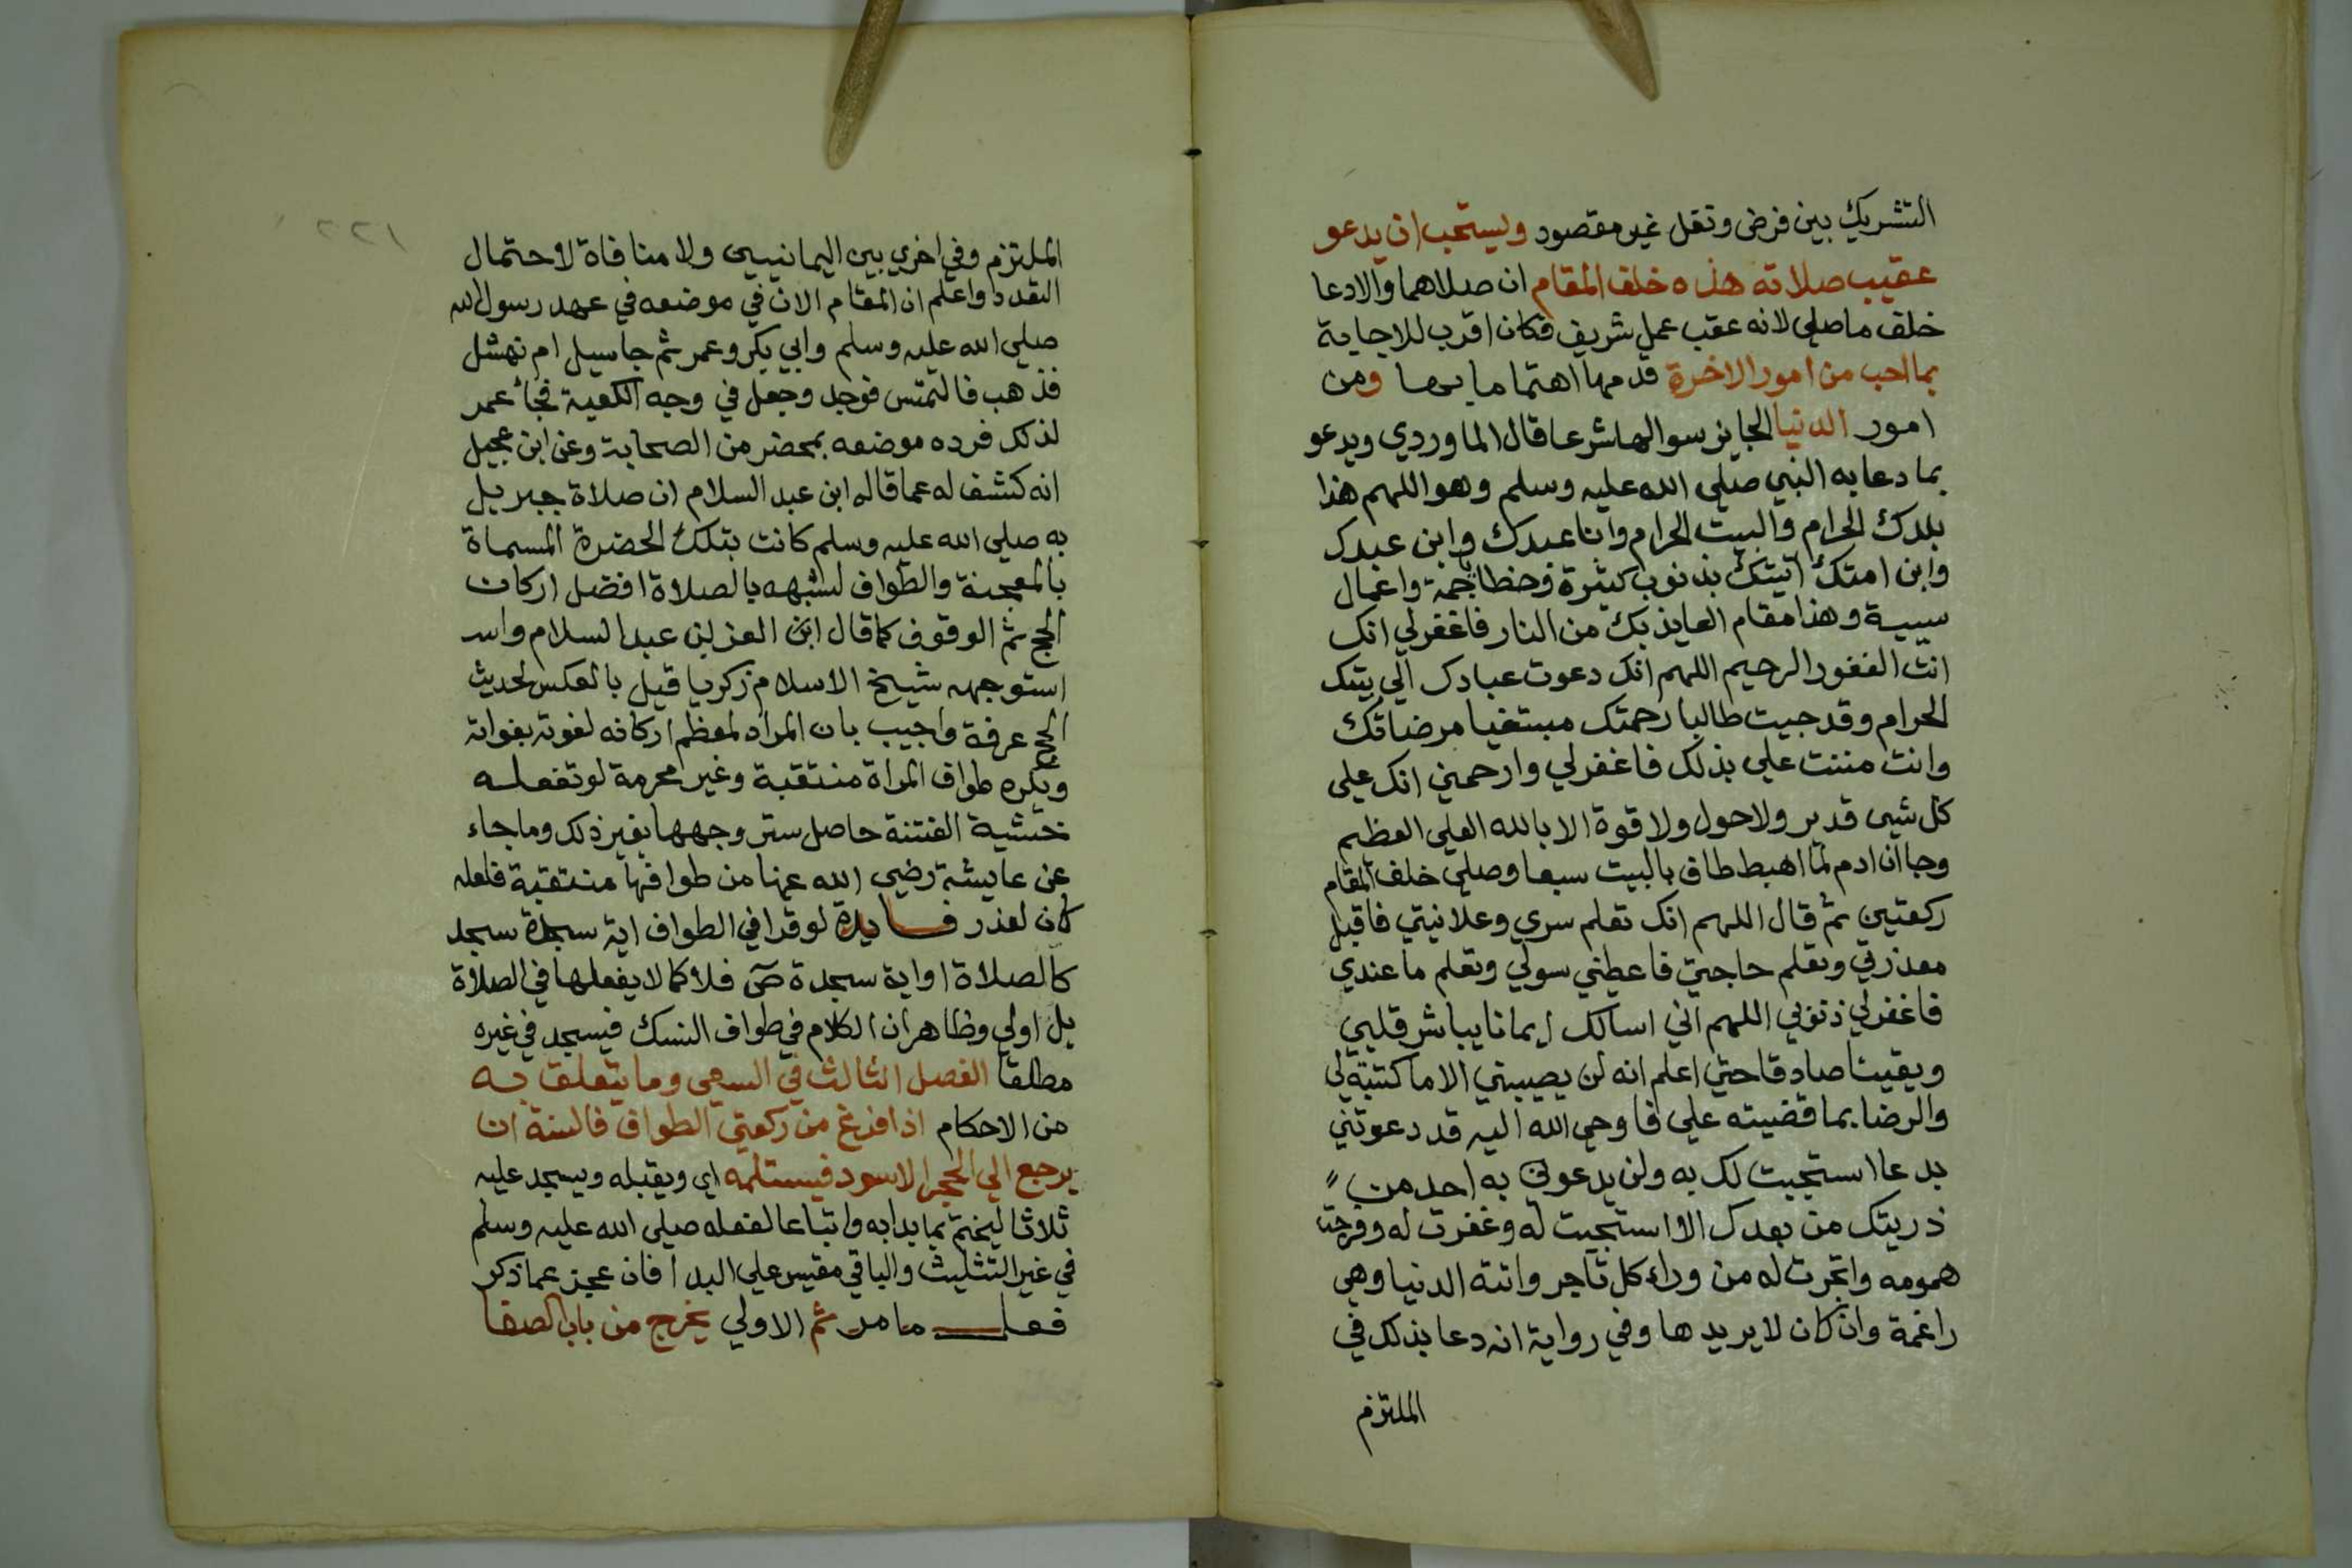 التشريك بين فرض ونفل غير مقصود ويستحب ان يدعو
عقيب صلاته هذه خلف المقام ان صلاهما والادعا
خلف ما صلي لانه عقب عمل شريف فكان اقرب للاجابة
بما احب من امور الاخرة قدمها اهتماما بها ومن
امور الدنيا الجايز سوالها شرعا قال الماوردي ويدعو
بما دعا به النبي صلي الله عليه وسلم وهو اللهم هذا
بلدك الحرام والبيت الحرام وانا عبدك وابن عبدك
وابن امتك اتيتك بذنوب كثيرة وخطايا جمة واعمال
سيية وهذا مقام العايذ بك من النار فاغفر لي انك
انت الغفور الرحيم اللهم انك دعوت عبادك الي بيتك
الحرام وقد جيت طالبا رحمتك مبتغيا مرضاتك
وانت مننت علي بذلك فاغفر لي وارحمني انك علي
كل شيى قدير ولا حول ولا قوة الا بالله العلي العظيم
وجا ان ادم لما اهبط طاف بالبيت سبعا وصلي خلف المقام
ركعتين ثم قال اللهم انك تعلم سري وعلانيتي فاقبل
معذرتي وتعلم حاجتي فاعطني سولي وتعلم ما عندي
فاغفر لي ذنوبي اللهم اني اسالك ايمانا يباشر قلبي
ويقينا صادقا حتي اعلم انه لن يصيبني الا ما كتبته لي
والرضا بما قضيته علي فاوحي الله اليه قد دعوتني
بدعا استجبت لك به ولن يدعوني به احد من
ذريتك من بعدك الا استجبت له وغفرت له وفرجت
همومه واتجرت له من وراء كل تاجر واتته الدنيا وهي
راغمة وان كان لا يريدها وفي رواية انه دعا بذلك في
الملتزم
الملتزم وفي اخري بين اليمانيين ولا منافاة لاحتمال
التعدد واعلم ان المقام الان في موضعه في عهد رسول الله
صلي الله عليه وسلم وابي بكر وعمر ثم جا سيل ام نهشل
فذهب فالتمس فوجد وجعل في وجه الكعبة فجأ عمر
لذلك فرده موضعه بمحضر من الصحابة وعن ابن عجيل
انه كشف له عما قاله ابن عبد السلام ان صلاة جبريل
به صلي الله عليه وسلم كانت بتلك الحضرة المسماة
بالمعجنة والطواف لشبهه بالصلاة افضل اركان
الحج ثم الوقوف كما قال ابن العز بن عبد السلام وان
استوجهه شيخ الاسلام زكريا قيل بالعكس لحديث
الحج عرفة واجيب بان المراد لمعظم اركانه لفوته بفواته
ويكره طواف المراة منتقبة وغير محرمة لو تفعله
خشية الفتنة حاصل ستر وجهها بغير ذلك وما جاء
عن عايشة رضي الله عنها من طوافها منتقبة فلعله
كان لعذر فايدة لو قرا في الطواف اية سجدة سجد
كالصلاة او اية سجدة صۤ فلا كما لا يفعلها في الصلاة
بل اولي وظاهر ان الكلام في طواف النسك فيسجد في غيره
مطلقا الفصل الثالث في السعي وما يتعلق به
من الاحكام اذا فرغ من ركعتي الطواف فالسنة ان
يرجع الي الحجر الاسود فيستلمه اي ويقبله ويسجد عليه
ثلاثا ليختم بما بدا به واتباعا لفعله صلي الله عليه وسلم
في غير التثليث والباقي مقيس علي البدا فان عجز عما ذكر
فعل ما مر ثم الاولي يخرج من باب الصفا